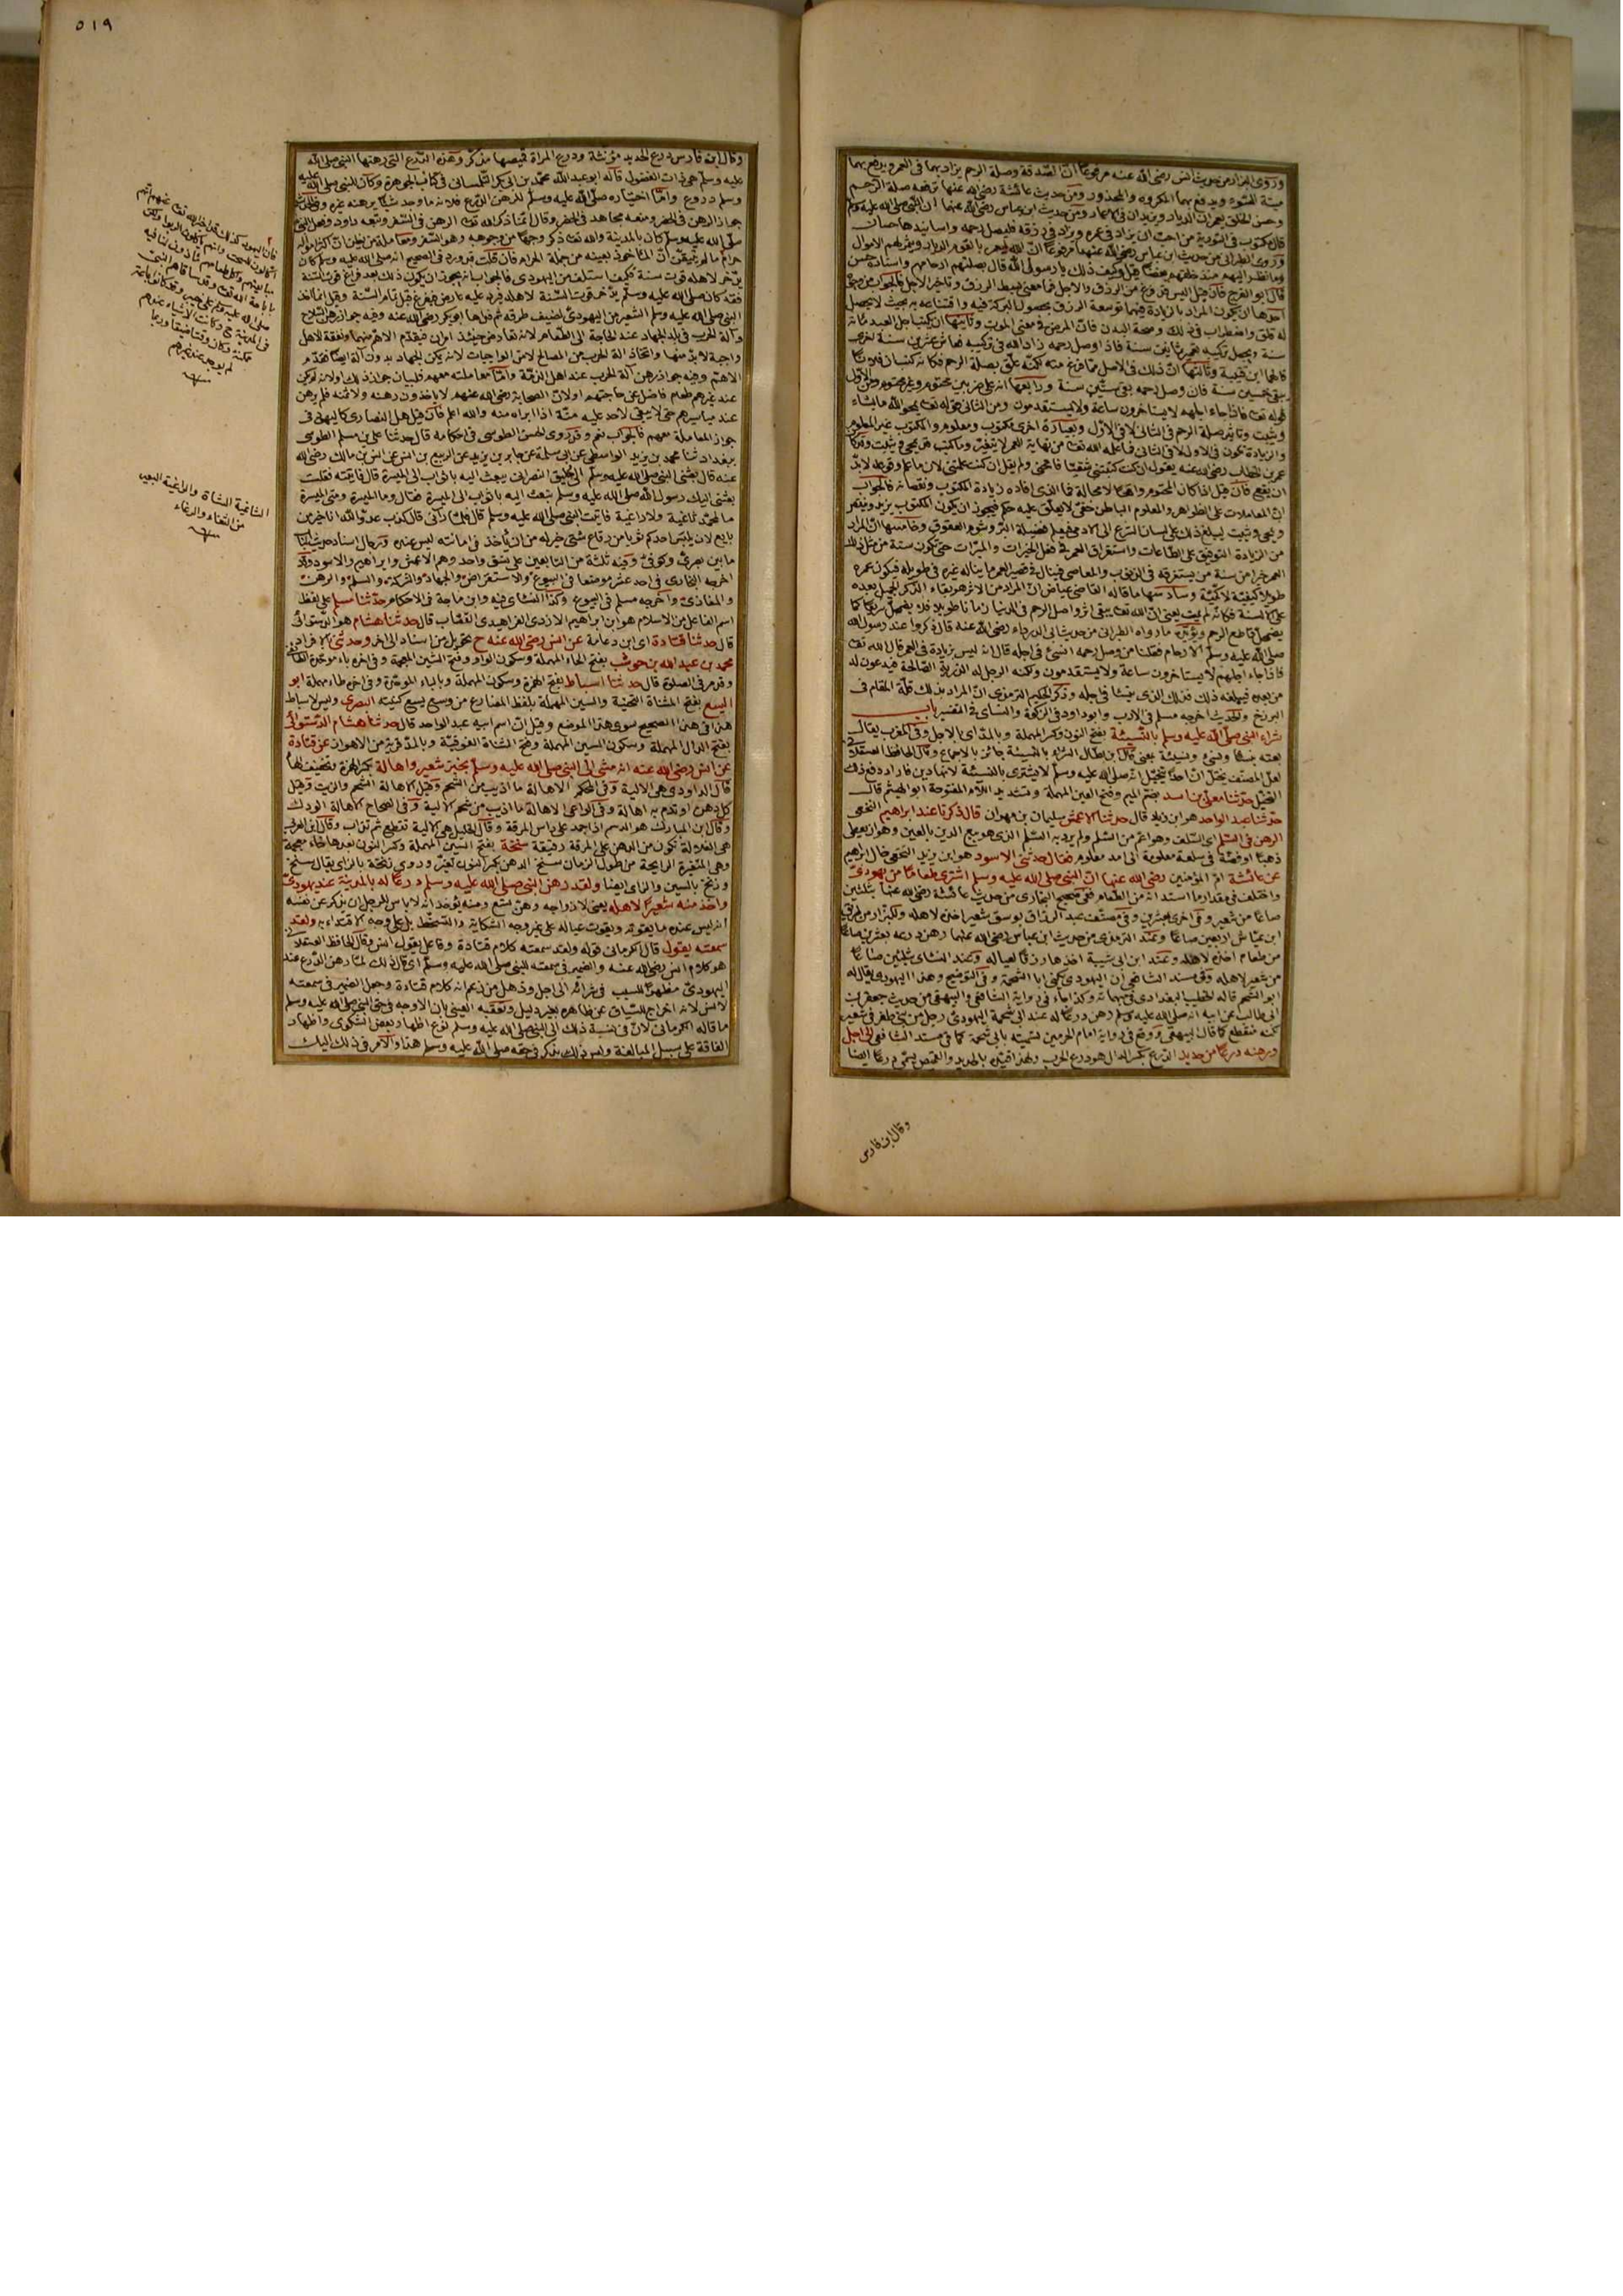 وروى البزار من حديث انس رضى الله عنه مرفوعا انّ الصّدقة وصلة الرحم يزاد بهما فى العمر ويدفع بهما
ميتة السّوء ويدفع بهما المكروه والمحذور ومن حديث عائشة رضى الله عنها ترفعه صلة الرّحم
وحسن الخلق يعمران الديار ويزيدان فى الاعمار ومن حديث ابن عباس رضى الله عنهما انّ النّبى صلى الله عليه وسلم
قال مكتوب فى التورية من احبّ ان يزاد فى عمره ويزاد فى رزقه فليصل رحمه واسانيدها حسان
وروى الطبرانى من حديث ابن عباس رضى الله عنهما مرفوعا انّ الله ليعمر بالقوم الديار ويثمر لهم الاموال
وما نظر اليهم منذ خلقهم بغضا قيل وكيف ذلك يا رسول الله قال بصلتهم ارحامهم واسناده حسن
قال ابو الفرج فان قيل اليس فرغ من الرزق والاجل فما معنى بسط الرزق وتاخير الاجل فالجواب من
احدها ان يكون المراد بالزيادة فيهما توسعة الرزق بحصول البركة فيه
له قلق واضطراب فى ذلك وصحة البدن فانّ المرض فى معنى الموت وثانيها ان يكتب اجل العبد مائة
سنة ويجعل تركيبه تعمير ثمانين سنة فاذا وصل رحمه زاد الله فى تركيبه فعاش عشرين سنة اخرى
قالهما ابن قتيبة وثالثها انّ ذلك فى الاصل ممّا فرغ منه لكنّه علّق بصلة الرحم فكانه كتب ان فلانا
يبقى خمسين سنة فان وصل رحمه بقى ستّين سنة ورابعها
قوله تعا فاذا جاء اجلهم لا يستاخرون ساعة ولا يستقدمون ومن الثانى قوله تعا يمحو الله ما يشاء
ويثبت وتاثير صلة الرحم فى الثانى لا فى الاوّل وبعبارة اخرى مكتوب ومعلوم والمكتوب غير المعلوم
عمر بن الخطاب رضى الله عنه يقول ان كنت كتبتنى شقيّا فامحنى ولم يقل ان كنت علمتنى لانّ ما علم وقوعه لا بدّ
ان يقع فان قيل اذا كان المحتوم واقعا لا محالة فما الذى افاده زيادة المكتوب ونقصانه فالجواب
انّ المعاملات على الظواهر والمعلوم الباطن خفىّ لا يعلّق عليه حكم فيجوز ان يكون المكتوب يزيد وينقص
ويمحى ويثبت ليبلغ ذلك على لسان الشرع الى الآدمى فيعلم فضيلة البرّ وشوم العقوق وخامسها انّ المراد
من الزيادة التوفيق على الطاعات واستغراق العمر فى فعل الخيرات والمبرّات
طويلا كيفيّة لا كمّيّة وسادسها ما قاله القاضى عياض انّ المراد من الاثر هو بقاء الذكر الجميل بعده
يضمحلّ اثر قاطع الرحم ويؤيّده ما رواه الطبرانى من حديث ابى الدرداء رضى الله عنه قال ذكروا عند رسول الله
صلى الله عليه وسلم الارحام فقلنا من وصل رحمه انسئ فى اجله قال انه ليس بزيادة فى العمر قال الله تعا
فاذا جاء اجلهم لا يستاخرون ساعة ولا يستقدمون ولكنه الرجل له الذرية الصالحة فيدعون له
من بعده فيبلغه ذلك فذلك الذى ينسأ فى اجله وذكر الحكيم الترمذى انّ المراد بذلك قلّة المقام فى
البرزخ والحديث اخرجه مسلم فى الادب وابو داود فى الزكوة والنسائى فى التفسير باب
شراء النبى صلى الله عليه وسلم بالنّسيئة بفتح النون وكسر المهملة وبالمدّ اى بالاجل وفى المغرب يقال
بعته بنسأ ونسئ ونسيئة بمعنى قال ابن بطّال الشراء بالنسيئة جائز بالاجماع وقال الحافظ العسقلانى
لعل المصنّف تخيّل انّ احدا يتخيّل انه صلى الله عليه وسلم لا يشترى بالنسيئة لانها دين فاراد دفع ذلك
التخيّل حدّثنا معلّى بن اسد بضمّ الميم وفتح العين المهملة وتشديد اللّام المفتوحة ابو الهيثم قال
حدّثنا عبد الواحد هو ابن زياد قال حدّثنا الاعمش سليمان بن مهران قال ذكرنا عند ابراهيم النخعى
الرهن فى السّلم اى السّلف وهو اعمّ من السّلم ولم يرد به السّلم الذى هو بيع الدين بالعين وهو ان يعطى
ذهبا او فضّة فى سلعة معلومة الى امد معلوم فقال حدّثنى الاسود هو ابن يزيد النخعى خال ابراهيم
عن عائشة امّ المؤمنين رضى الله عنها انّ النبى صلى الله عليه وسلم اشترى طعاما من يهودىّ
واختلف فى مقدار ما استدانه من الطّعام ففى صحيح البخارى من حديث عائشة رضى الله عنها بثلثين
صاعا من شعير وفى اخرى بعشرين وفى مصنّف عبد الرزاق بوسق شعير اخذه لاهله وللبزّار من طريق
ابن عبّاس اربعين صاعا وعند الترمذى من حديث ابن عباس رضى الله عنهما رهن درعه بعشرين صاعا
من طعام اخذه لاهله وعند ابن ابى شيبة اخذها رزقا لعياله وعند النسائى بثلثين صاعا
من شعير لاهله وفى مسند الشافعى ان اليهودى يكنى ابا الشحم وفى التوضيح وهذا اليهودى يقال له
ابو الشحم قاله الخطيب البغدادى فى مبهماته وكذا جاء فى رواية الشافعى والبيهقى من حديث جعفر بن
ابى طالب عن ابيه انه صلى الله عليه وسلم رهن درعا له عند ابى شحمة اليهودىّ رجل من بنى ظفر فى شعير
لكنه منقطع كما قال البيهقى ووقع فى رواية امام الحرمين تسميته بابى شحمة كما فى مسند الشافعى الى اجل
ورهنه درعا من حديد الدّرع بكسر الدال هو درع الحرب ولهذا قيّده بالحديد والقميص يسمّى درعا ايضا
وقال ابن فارس
٥١٩
وقال ابن فارس درع الحديد مؤنثة ودرع المراة قميصها مذكّر وهذه الدّرع التى رهنها النبى صلى الله
عليه وسلم هى ذات الفضول قاله ابو عبد الله محمّد بن ابى بكر التّلمسانى فى كتاب الجوهرة وكان للنبى صلى الله عليه
وسلم دروع وامّا اختياره صلّى الله عليه وسلم لرهن الدّرع فلانه ما وجد شيئا يرهنه غيره وفى الحديث
جواز الرهن فى الحضر ومنعه مجاهد فى الحضر وقال انّما ذكر الله تعا الرهن فى السّفر وتبعه داود وفعل النبى
صلّى الله عليه وسلم كان بالمدينة والله تعا ذكر وجها من وجوهه وهو السّفر ومعاملة من يظن انّ اكثر ماله
حرام ما لم يتيقّن انّ الماخوذ بعينه من جملة الحرام فان قلت قد ورد فى الصحيح انه صلى الله عليه وسلم كان
يدّخر لاهله قوت سنة فكيف استلف من اليهودى فالجواب انه يجوز ان يكون ذلك بعد فراغ قوت السّنة
النبى صلى الله عليه وسلم الشعير من اليهودىّ لضيف طرقه ثم فداها ابو بكر رضى الله عنه وفيه جواز رهن السّلاح
وآلة الحرب فى بلد الجهاد عند الحاجة الى الطّعام لانه تعارض حينئذ امران فيقدّم الاهمّ منهما ونفقة الاهل
واجبة لا بدّ منها واتخاذ آلة الحرب من المصالح لا من الواجبات لانه يمكن الجهاد بدون آلة ايضا فقدّم
الاهمّ وفيه جواز رهن آلة الحرب عند اهل الذمّة وامّا معاملته معهم فلبيان جواز ذلك او لانه لم يكن
عند غيرهم طعام فاضل عن حاجتهم او لانّ الصحابة رضى الله عنهم لا ياخذون رهنه ولا ثمنه فلم يرهن
عند مياسيرهم حتى لا يبقى لاحد عليه منّة اذا ابراه منه والله اعلم فان قيل هل النصارى كاليهود فى
جواز المعاملة معهم فالجواب نعم وقد روى الحسن الطوسى فى احكامه قال حدثنا على بن مسلم الطوسى
ببغداد ثنا محمد بن يزيد الواسطى عن ابى سلمة عن جابر بن يزيد عن الربيع بن انس عن انس بن مالك رضى الله
عنه قال بعثنى النبى صلى الله عليه وسلم الى حليق النصرانى يبعث اليه باثواب الى الميسرة قال فاتيته فقلت
بعثنى اليك رسول الله صلى الله عليه وسلم تبعث اليه باثواب الى الميسرة فقال وما الميسرة ومتى الميسرة
ما لمحمّد ثاغية ولا راغية فاتيت النبى صلى الله عليه وسلم قال فلمّا رآنى قال كذب عدوّ الله انا خير من
بايع لان يلبس احدكم ثوبا من رقاع شتى خير له من ان ياخذ فى امانته ليس عنده ورجال اسناد حديث الباب
ما بين بصرىّ وكوفىّ وفيه ثلثة من التابعين على نسق واحد وهم الاعمش وابراهيم والاسود وقد
اخرجه البخارى فى احد عشر موضعا فى البيوع والاستقراض والجهاد والشركة والسلم والرهن
والمغازى واخرجه مسلم فى البيوع وكذا النسائى فيه وابن ماجة فى الاحكام حدّثنا مسلم على لفظ
اسم الفاعل من الاسلام هو ابن ابراهيم الازدى الفراهيدى القصّاب قال حدثنا هشام هو الدستوائى
قال حدثنا قتادة اى ابن دعامة عن انس رضى الله عنه ح تحويل من اسناد الى آخر وحدثنى بالافراد
محمد بن عبد الله بن حوشب بفتح الحاء المهملة وسكون الواو وفتح الشين المعجمة وفى آخره باء موحّدة
وقد مر فى الصلوة قال حدثنا اسباط بفتح الهمزة وسكون المهملة وبالباء الموحّدة وفى آخره طاء مهملة ابو
اليسع بفتح المثناة التحتية والسين المهملة بلفظ المضارع من وسع يسع كنيته البصرى وليس لاسباط
هذا فى هذا الصحيح سوى هذا الموضع وقيل انّ اسم ابيه عبد الواحد قال حدثنا هشام الدّستوائى
بفتح الدال المهملة وسكون السين المهملة وفتح المثناة الفوقية وبالمدّ قرية من الاهواز عن قتادة
عن انس رضى الله عنه انه مشى الى النبى صلى الله عليه وسلم بخبز شعير واهالة بكسر الهمزة وتخفيف الهاء
قال الداودى هى الالية وفى المحكم الاهالة ما اذيب من الشحم وقيل الاهالة الشحم والزيت وقيل
كل دهن اوتدم به اهالة وفى الواعى الاهالة ما اذيب من شحم الالية وفى الصحاح الاهالة الودك
وقال ابن المبارك هو الدسم اذا جمد على راس المرقة وقال الخليل هى الالية تقطع ثم تذاب وقال ابن العربى
هى الغلالة تكون من الدهن على المرقة رقيقة سنخة بفتح السين المهملة وكسر النون بعدها خاء معجمة
وهى المتغيرة الرايحة من طول الزمان سنخ الدهن بكسر النون تغيّر وروى زنخة بالزاى يقال سنخ
وزنخ بالسين والزاى ايضا ولقد رهن النبى صلى الله عليه وسلم درعا له بالمدينة عند يهودىّ
واخذ منه شعيرا لاهله يعنى لازواجه وهنّ تسع ومنه يؤخذ انه لا باس للرجل ان يذكر عن نفسه
انه ليس عنده ما يقوته ويقوت عياله على غير وجه الشكاية والتسخّط بل على وجه الاقتداء به ولقد
سمعته يقول قال الكرمانى قوله ولقد سمعته كلام قتادة وفاعل يقول انس وقال الحافظ العسقلانى
هو كلام انس رضى الله عنه والضمير فى سمعته للنبى صلى الله عليه وسلم اى قال ذلك لمّا رهن الدّرع عند
اليهودىّ مظهرا للسبب فى شرائه الى اجل وذهل من زعم انه كلام قتادة وجعل الضمير فى سمعته
لانس لانه اخراج السّياق عن ظاهره بغير دليل وتعقّبه العينى بان الاوجه فى حق النبى صلى الله عليه وسلم
ما قاله الكرمانى لانّ فى نسبة ذلك الى النبى صلى الله عليه وسلم نوع اظهار بعض الشكوى واظهار
الفاقة على سبيل المبالغة وليس ذلك يذكر فى حقه صلى الله عليه وسلم هذا والامر فى ذلك اليك
الثاغية الشاة والراغية البعير
من الثغاء والرغاء